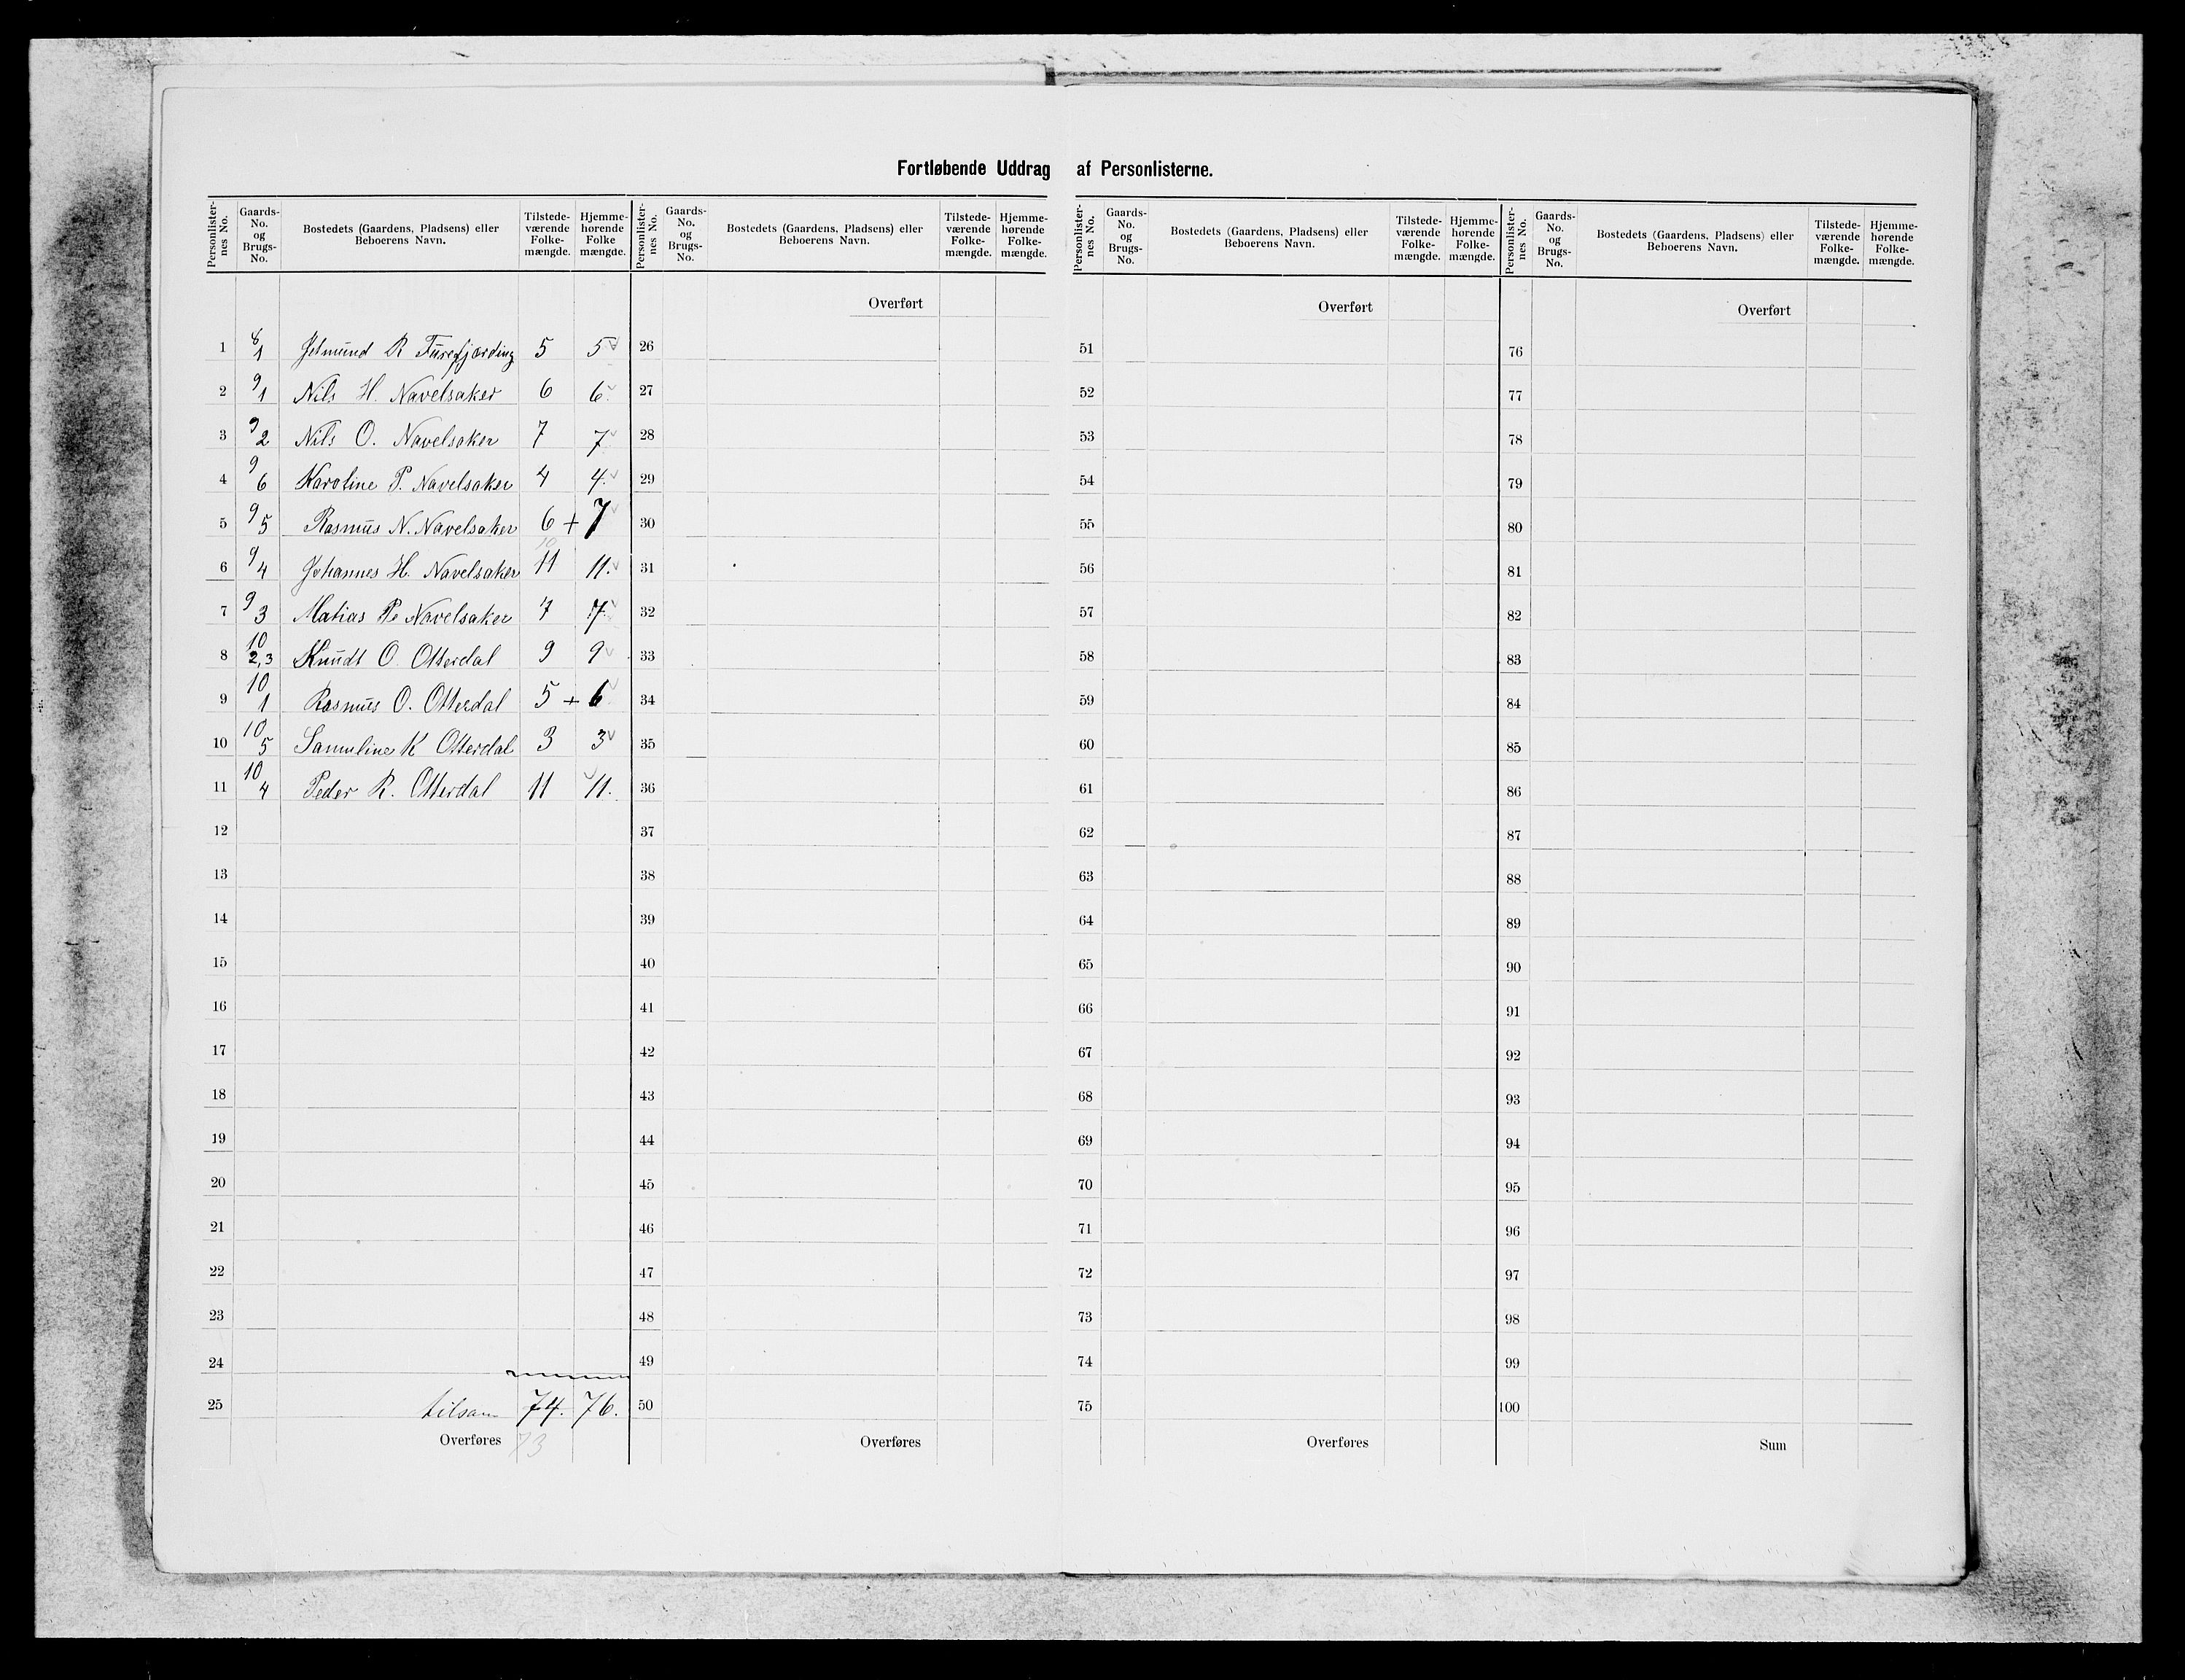 Fortløbende Uddrag af Personlisterne.
Personlister-nes No. Gaards-No. og Brugs-No. Bostedets (Gaardens, Pladsens) eller Beboerens Navn. Tilstede-værende Folke-mængde. Hjemme-hørende Folke mængde.
1 8/1 Jetmund R Furefjærding 5 5
2 9/1 Nils H. Navelsaker 6 6.
3 9/2 Nils O. Navelsaker 7 7
4 9/6 Karoline P. Navelsaker 4 4.
5 9/5 Rasmus N. Navelsaker 6 + 7
10
6 9/4 Johannes H. Navelsaker 11 11.
7 9/3 Matias P. Navelsaker 7 7.
8 10/2,3 Knudt O. Otterdal 9 9
9 10/1 Rasmus O. Otterdal 5 + 6
10 10/5 Samuline K Otterdal 3 3
11 10/4 Peder R. Otterdal 11 11.
12
13
14
15
16
17
18
19
20
21
22
23
24
25 tilsam 74. 76.
Overføres 73
Personlister-nes No. Gaards-No. og Brugs-No. Bostedets (Gaardens, Pladsens) eller Beboerens Navn. Tilstede-værende Folke-mængde. Hjemme-hørende Folke-mængde.
Overført
26
27
28
29
30
31
32
33
34
35
36
37
38
39
40
41
42
43
44
45
46
47
48
49
50
Overføres
Personlister-nes No. Gaards-No. og Brugs-No. Bostedets (Gaardens, Pladsens) eller Beboerens Navn. Tilstede-værende Folke-mængde. Hjemme-hørende Folke-mængde.
Overført
51
52
53
54
55
56
57
58
59
60
61
62
63
64
65
66
67
68
69
70
71
72
73
74
75
Overføres
Personlister-nes No. Gaards-No. og Brugs-No. Bostedets (Gaardens, Pladsens) eller Beboerens Navn. Tilstede-værende Folke-mængde. Hjemme-hørende Folke-mængde.
Overført
76
77
78
79
80
81
82
83
84
85
86
87
88
89
90
91
92
93
94
95
96
97
98
99
100
Sum